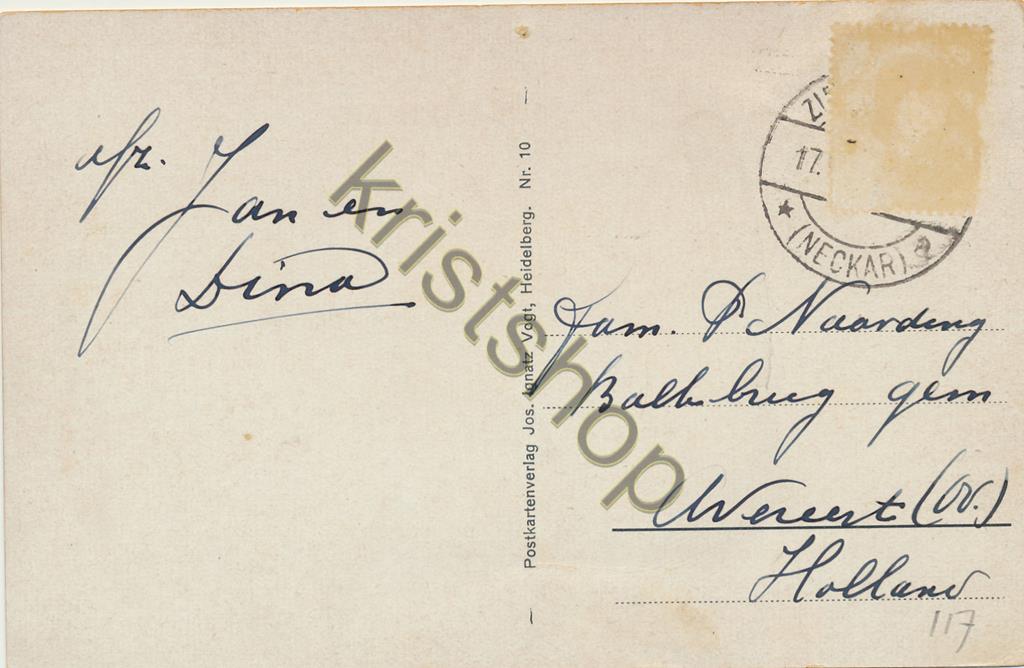 afz.
Jan en
Dina
Postkartenverlag Jos. Ignatz Vogt, Heidelberg. Nr. 10
17.
(NECKAR)
Fam. P Naarding
Balkbrug gem
Avereest (Ov.)
Holland
117
kristshop